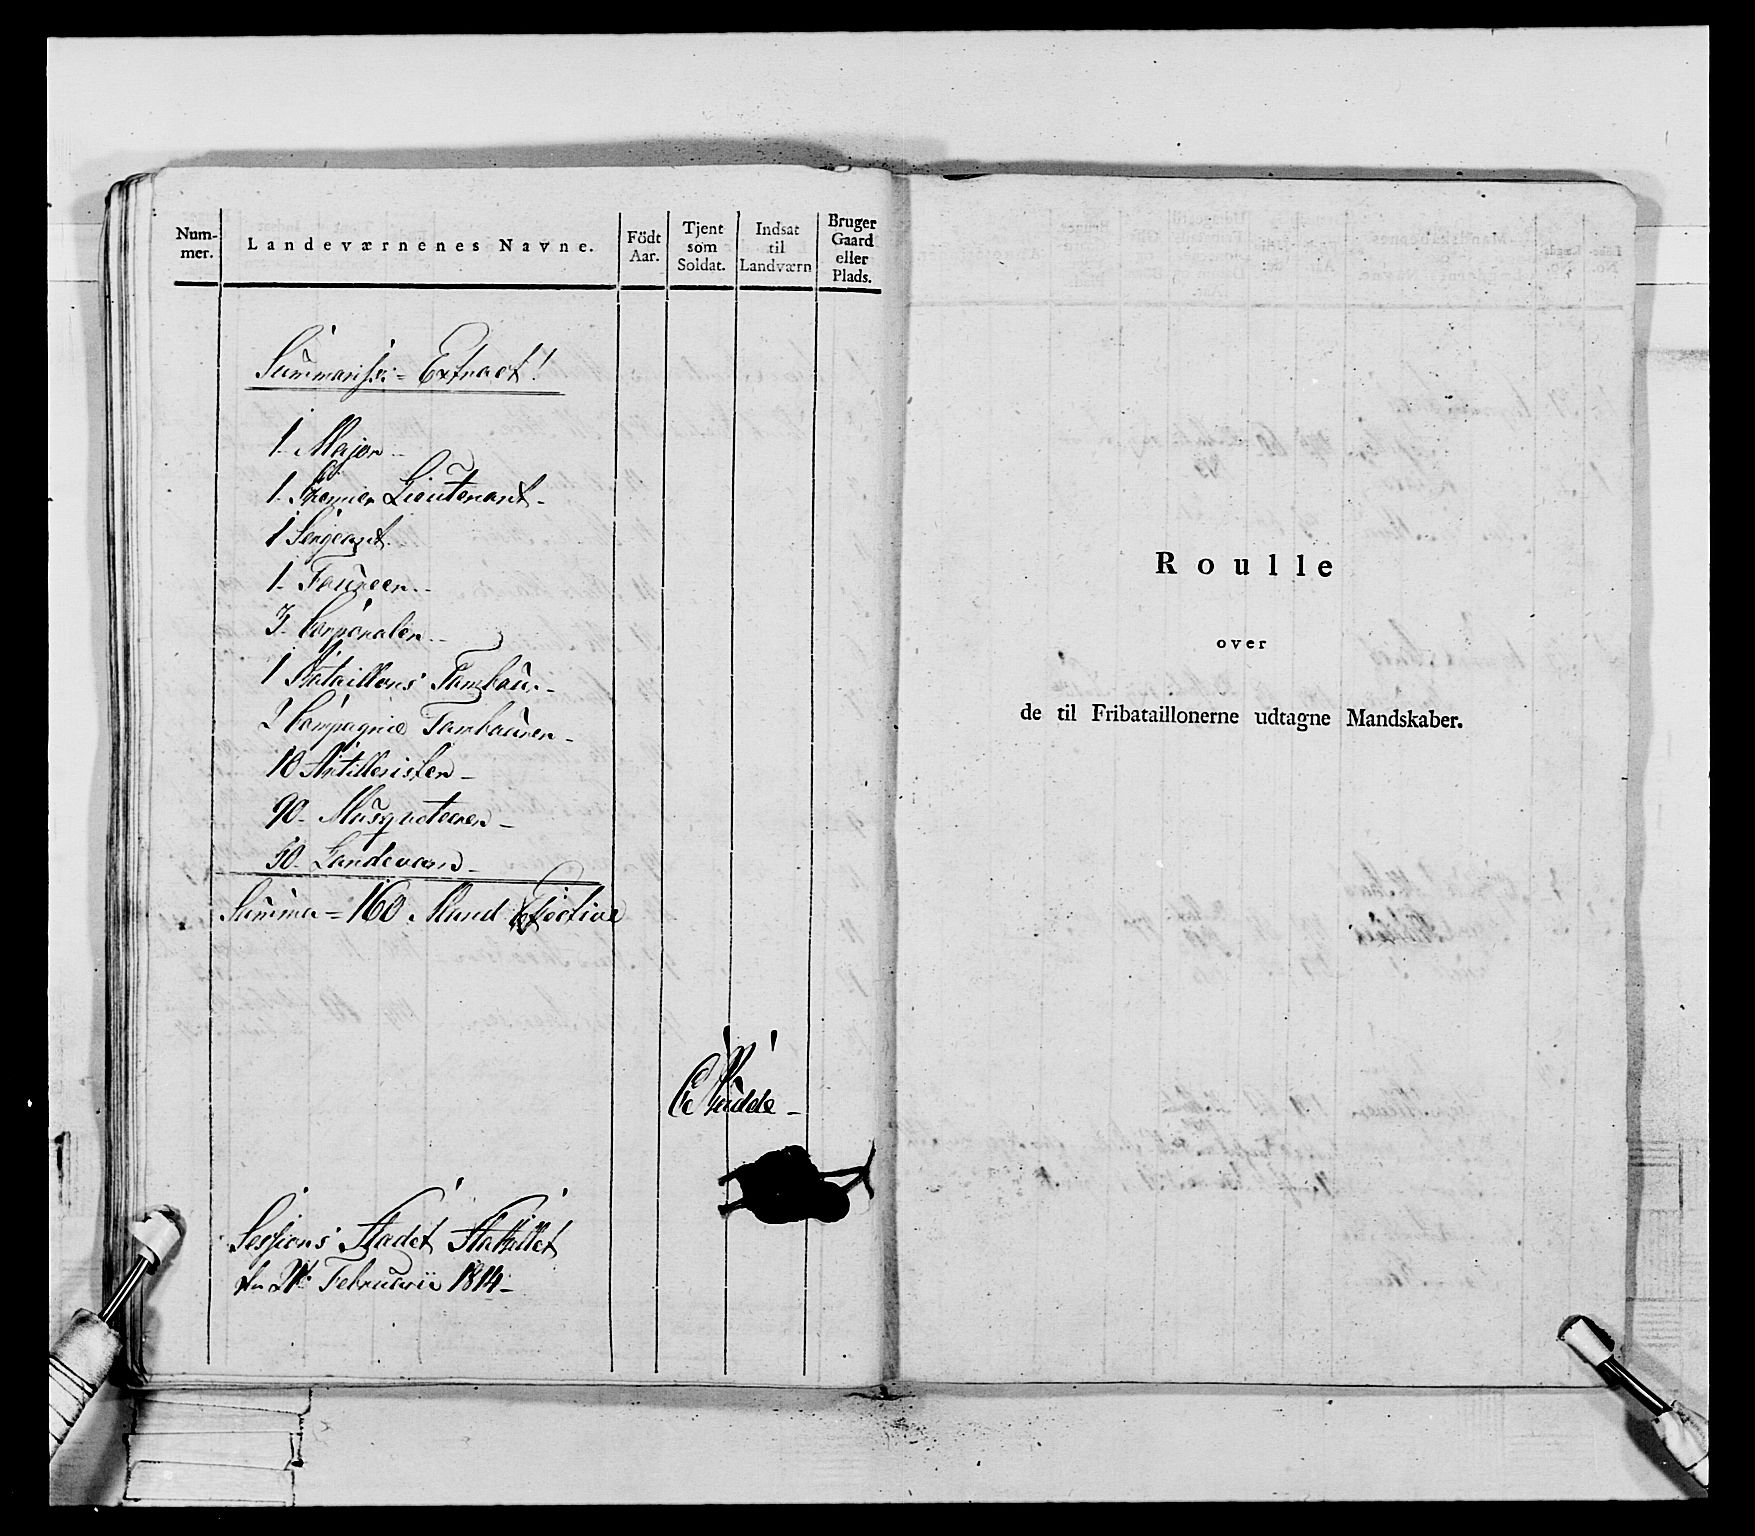 Num-
mer.
Landeværnenes Navne.
Födt
Aar.
Tjent
som
Soldat.
Indsat
til
Landværn
Bruger
Gaard
eller
Plads.
Extract!
1. Major..
1. Premier Lieutenant-
1 Sergeant.
1. Foureer..
3. Corporaler..
1 Batallions Tambour-
2 Compagnie Tambourer-
10 Artillerister-
90- Musqueterer-
50- Landeværn-
Summa = 160 Mand Efective
Sessions Stadet
Februarii 1814-
Roulle
over
de til Fribataillonerne udtagne Mandskaber.